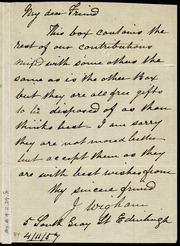 My dear Friend
This box contains the
rest of our contributions
mixd with some others the
same as is the other Box
but they are all free gifts
to be disposed of as thou
thinks best. I am sorry
they are not moved better
but accept them as they
are with best wishes from
thy sincere friend
J. Wigham
5 South Gray St Edinburgh
4/11/57